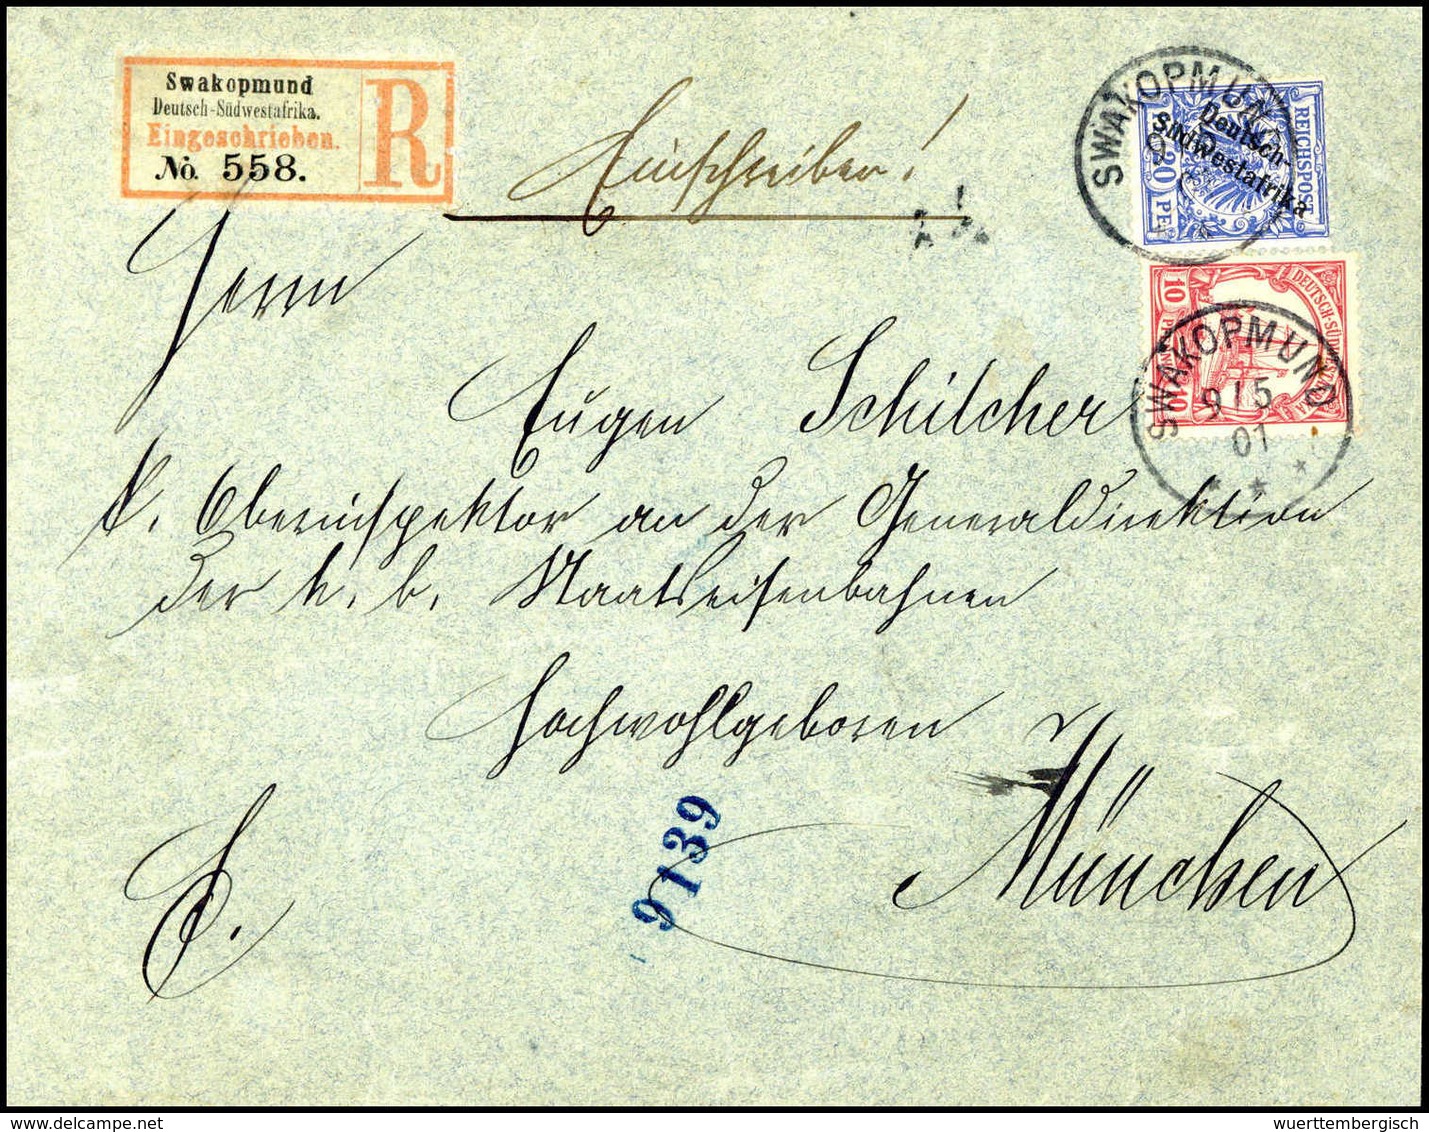 Swakopmund
Deutsch-Südwestafrika.
Eingeschrieben.
No. 558.
R
Einschreiben!
SWAKOPMUND
9
REICHSPOST
20 PF
Deutsch-
Südwestafrika
10
10
DEUTSCH-SÜD
SWAKOPMUND
9 5
01
Herrn
Eugen Schilcher
k. Oberinspektor an der Generaldirektion
der k. b. Staatseisenbahnen
Hochwohlgeboren
München
9139
wuerttembergisch